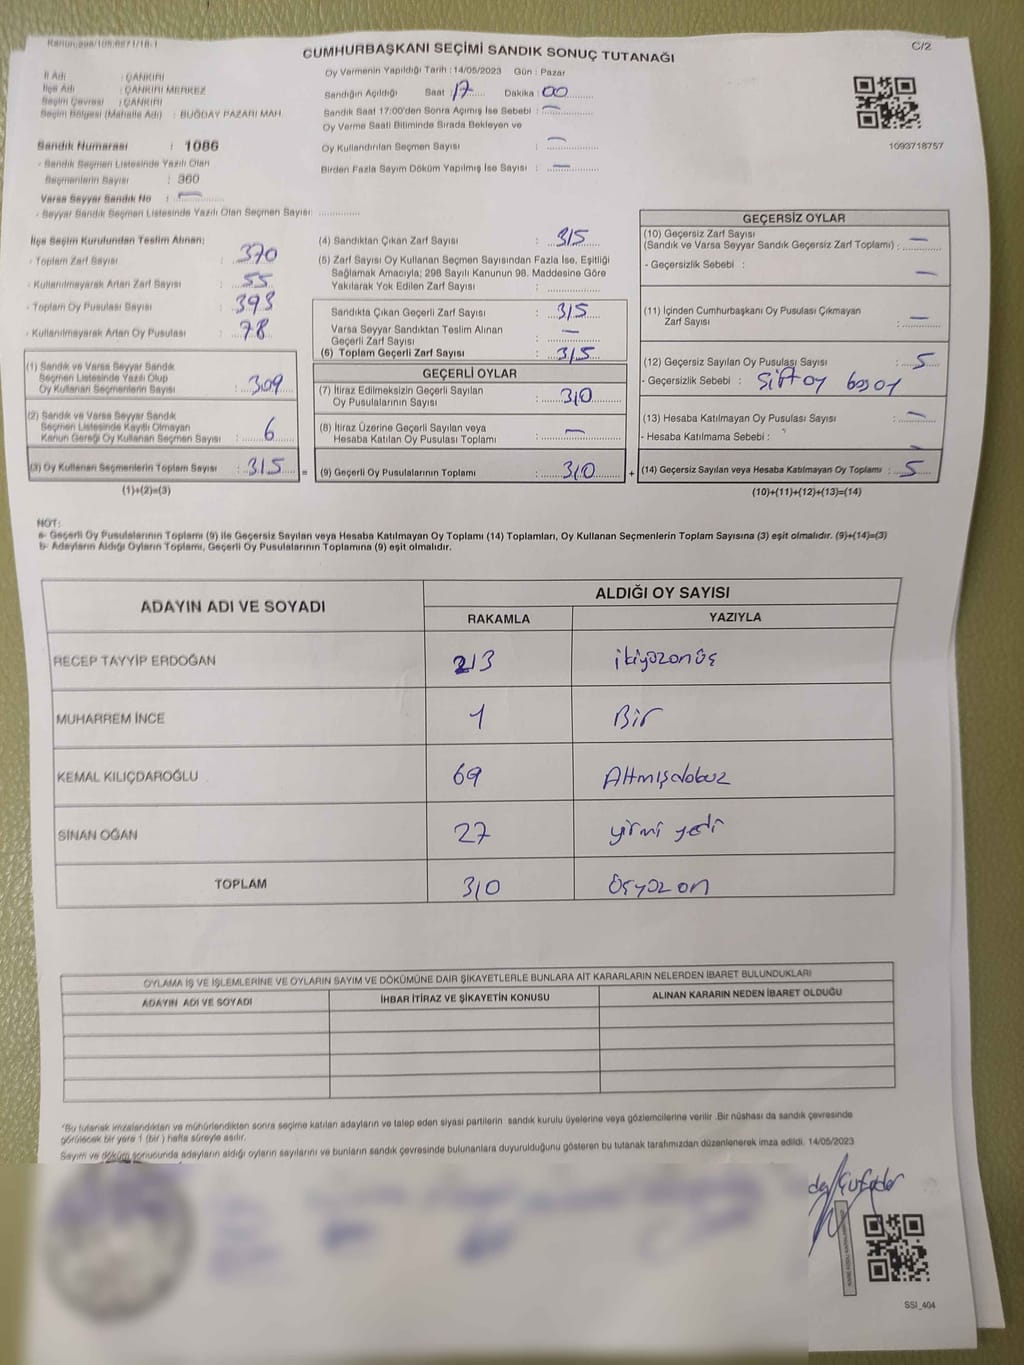 Kanun:298/105,6271/18-1
C/2
CUMHURBAŞKANI SEÇİMİ SANDIK SONUÇ TUTANAĞI
İl Adı : ÇANKIRI
İlçe Adı : ÇANKIRI MERKEZ
Seçim Çevresi : ÇANKIRI
Seçim Bölgesi (Mahalle Adı) : BUĞDAY PAZARI MAH.
Sandık Numarası : 1086
- Sandık Seçmen Listesinde Yazılı Olan
Seçmenlerin Sayısı : 360
Varsa Seyyar Sandık No : —
- Seyyar Sandık Seçmen Listesinde Yazılı Olan Seçmen Sayısı:
Oy Vermenin Yapıldığı Tarih : 14/05/2023 Gün : Pazar
Sandığın Açıldığı Saat : 17 Dakika : 00
Sandık Saat 17:00'den Sonra Açımış İse Sebebi : —
Oy Verme Saati Bitiminde Sırada Bekleyen ve
Oy Kullandırılan Seçmen Sayısı : —
Birden Fazla Sayım Döküm Yapılmış İse Sayısı : —
1093718757
İlçe Seçim Kurulundan Teslim Alınan;
- Toplam Zarf Sayısı : 370
- Kullanılmayarak Artan Zarf Sayısı : 55
- Toplam Oy Pusulası Sayısı : 393
- Kullanılmayarak Artan Oy Pusulası : 78
(1) Sandık ve Varsa Seyyar Sandık
Seçmen Listesinde Yazılı Olup
Oy Kullanan Seçmenlerin Sayısı : 309
(2) Sandık ve Varsa Seyyar Sandık
Seçmen Listesinde Kayıtlı Olmayan
Kanun Gereği Oy Kullanan Seçmen Sayısı : 6
(3) Oy Kullanan Seçmenlerin Toplam Sayısı : 315 =
(1)+(2)=(3)
(4) Sandıktan Çıkan Zarf Sayısı : 315
(5) Zarf Sayısı Oy Kullanan Seçmen Sayısından Fazla İse, Eşitliği
Sağlamak Amacıyla; 298 Sayılı Kanunun 98. Maddesine Göre
Yakılarak Yok Edilen Zarf Sayısı :
Sandıkta Çıkan Geçerli Zarf Sayısı : 315
Varsa Seyyar Sandıktan Teslim Alınan
Geçerli Zarf Sayısı : —
(6) Toplam Geçerli Zarf Sayısı : 315
GEÇERLİ OYLAR
(7) İtiraz Edilmeksizin Geçerli Sayılan
Oy Pusulalarının Sayısı : 310
(8) İtiraz Üzerine Geçerli Sayılan veya
Hesaba Katılan Oy Pusulası Toplamı : —
(9) Geçerli Oy Pusulalarının Toplamı : 310 +
GEÇERSİZ OYLAR
(10) Geçersiz Zarf Sayısı
(Sandık ve Varsa Seyyar Sandık Geçersiz Zarf Toplamı) : —
- Geçersizlik Sebebi : —
(11) İçinden Cumhurbaşkanı Oy Pusulası Çıkmayan
Zarf Sayısı : —
(12) Geçersiz Sayılan Oy Pusulası Sayısı : 5
- Geçersizlik Sebebi :
(13) Hesaba Katılmayan Oy Pusulası Sayısı : —
- Hesaba Katılmama Sebebi :
(14) Geçersiz Sayılan veya Hesaba Katılmayan Oy Toplamı : 5
(10)+(11)+(12)+(13)=(14)
NOT:
a- Geçerli Oy Pusulalarının Toplamı (9) ile Geçersiz Sayılan veya Hesaba Katılmayan Oy Toplamı (14) Toplamları, Oy Kullanan Seçmenlerin Toplam Sayısına (3) eşit olmalıdır. (9)+(14)=(3)
b- Adayların Aldığı Oyların Toplamı, Geçerli Oy Pusulalarının Toplamına (9) eşit olmalıdır.
ADAYIN ADI VE SOYADI
ALDIĞI OY SAYISI
RAKAMLA YAZIYLA
RECEP TAYYİP ERDOĞAN 213 ikiyüzonüç
MUHARREM İNCE 1 Bir
KEMAL KILIÇDAROĞLU 69 Altmışdokuz
SİNAN OĞAN 27 yirmi yedi
TOPLAM 310 üçyüz on
OYLAMA İŞ VE İŞLEMLERİNE VE OYLARIN SAYIM VE DÖKÜMÜNE DAİR ŞİKAYETLERLE BUNLARA AİT KARARLARIN NELERDEN İBARET BULUNDUKLARI
ADAYIN ADI VE SOYADI İHBAR İTİRAZ VE ŞİKAYETİN KONUSU ALINAN KARARIN NEDEN İBARET OLDUĞU
*Bu tutanak imzalandıktan ve mühürlendikten sonra seçime katılan adayların ve talep eden siyasi partilerin sandık kurulu üyelerine veya gözlemcilerine verilir .Bir nüshası da sandık çevresinde
görülecek bir yere 1 (bir ) hafta süreyle asılır.
Sayım ve döküm sonucunda adayların aldığı oyların sayılarını ve bunların sandık çevresinde bulunanlara duyurulduğunu gösteren bu tutanak tarafımızdan düzenlenerek imza edildi. 14/05/2023
SSI_404